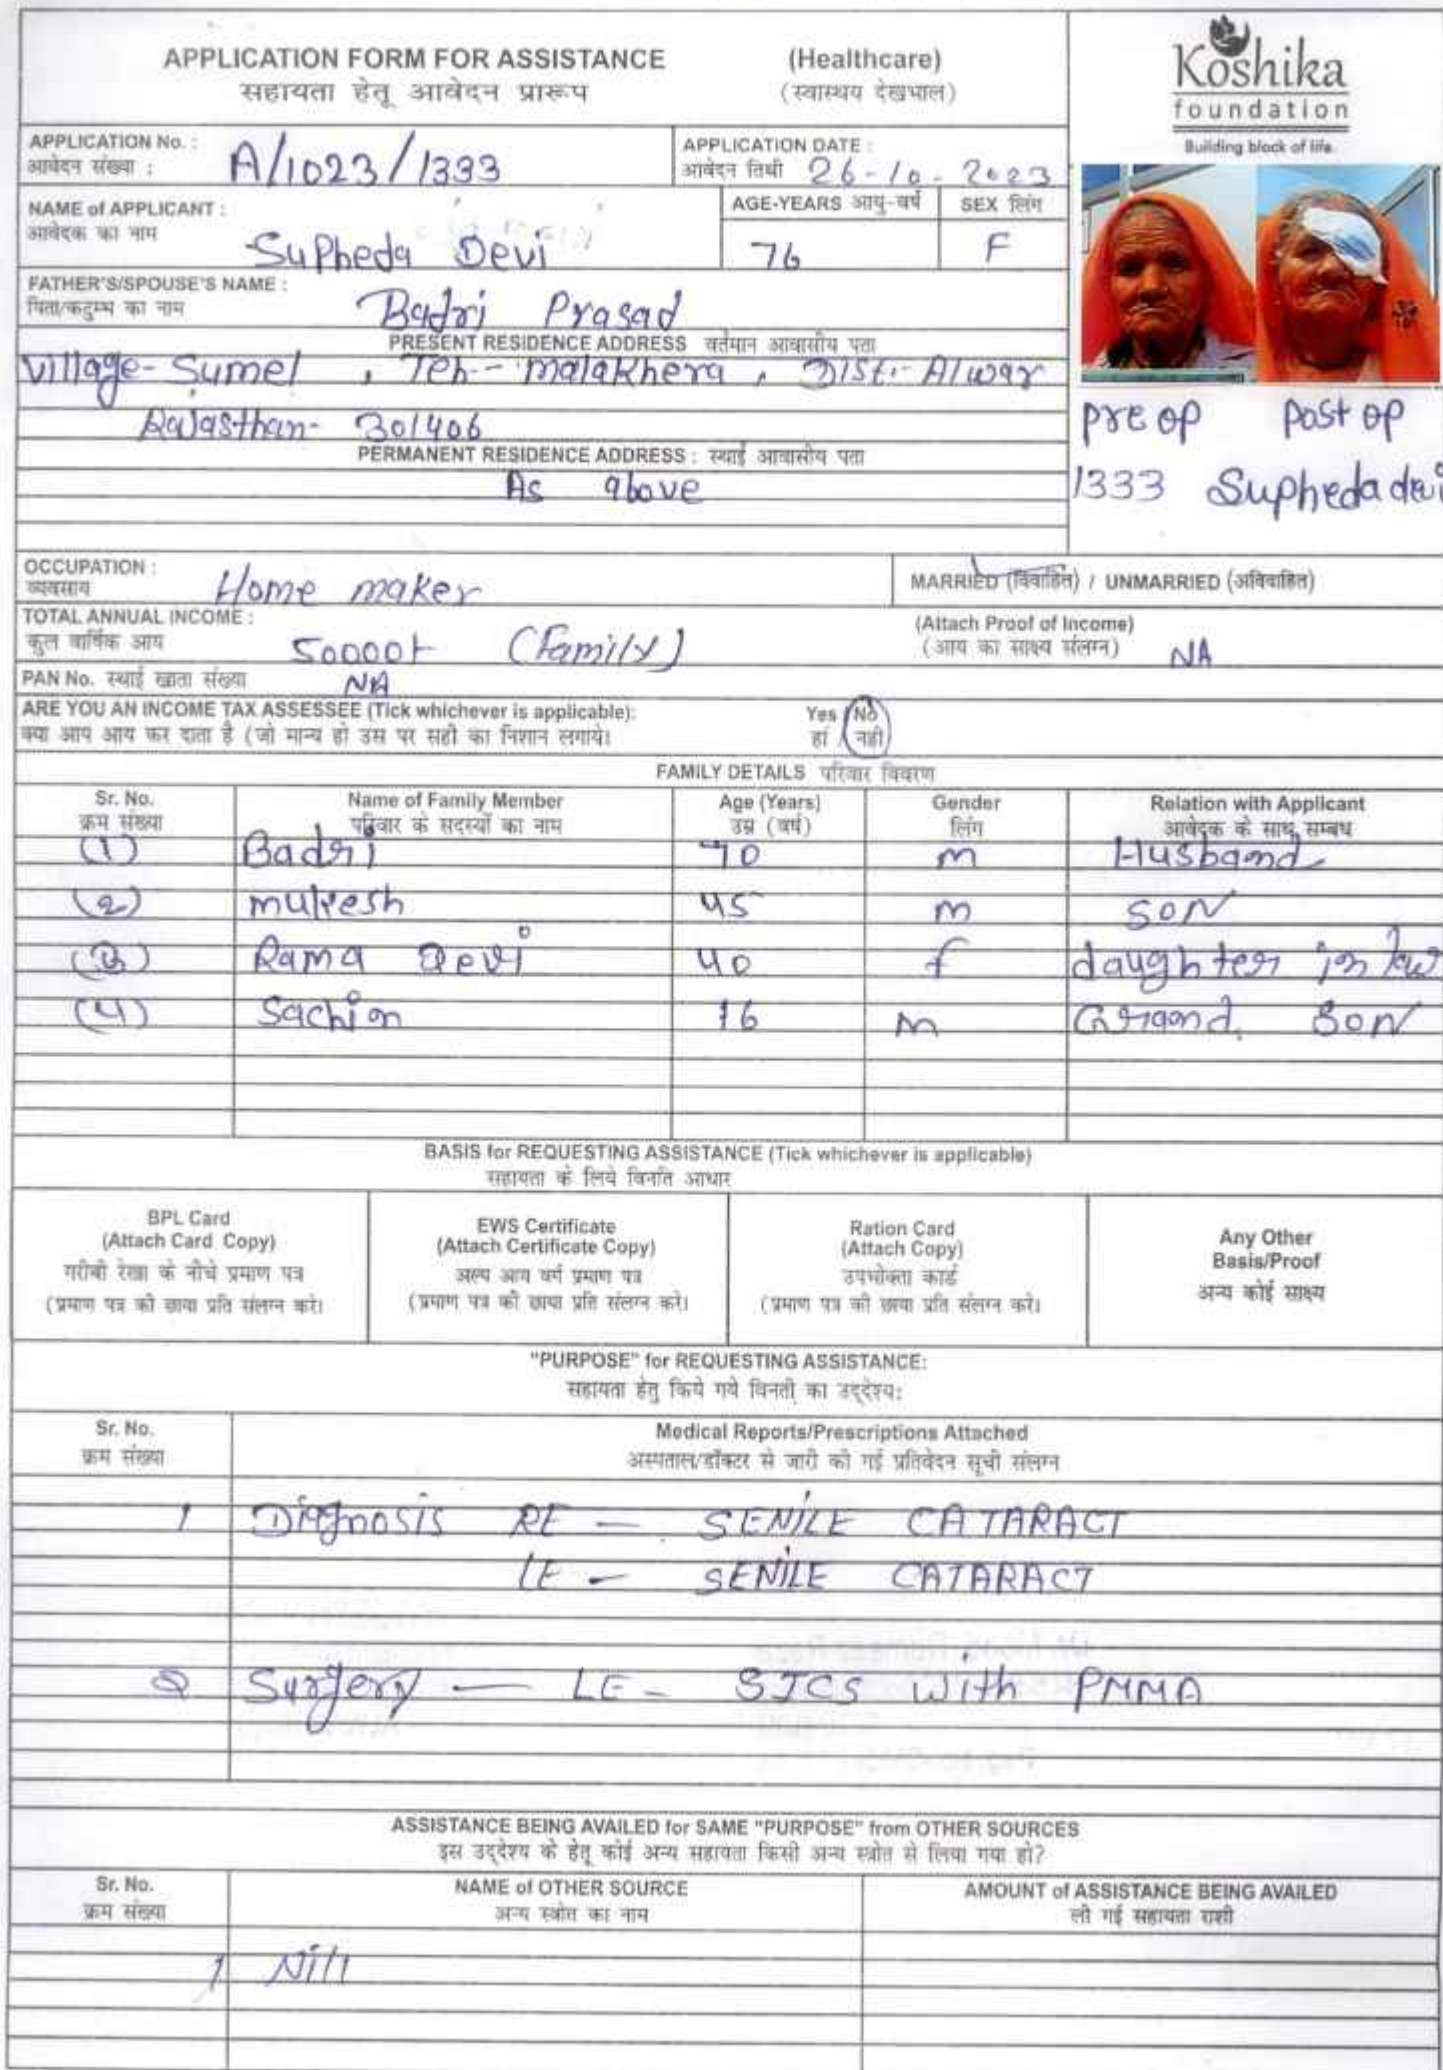 APPLICATION FORM FOR ASSISTANCE (Healthcare)
सहायता हेतू आवेदन प्रारूप (स्वास्थय देखभाल)
Koshika
foundation
Building block of life.
APPLICATION No. :
आवेदन संख्या : A/1023/1333
APPLICATION DATE :
आवेदन तिथी 26-10-2023
NAME of APPLICANT :
आवेदक का नाम Supheda Devi
AGE-YEARS आयु-वर्ष
76
SEX लिंग
F
FATHER'S/SPOUSE'S NAME :
पिता/कटुम्ब का नाम Badri Prasad
PRESENT RESIDENCE ADDRESS वर्तमान आवासीय पता
Village- Sumel , Teh- malakhera , Dist:- Alwar
Rajasthan- 301406
PERMANENT RESIDENCE ADDRESS : स्थाई आवासीय पता
As above
pre op post op
1333 Supheda devi
OCCUPATION :
व्यवसाय Home maker
MARRIED (विवाहित) / UNMARRIED (अविवाहित)
TOTAL ANNUAL INCOME :
कुल वार्षिक आय 50000/- (Family)
(Attach Proof of Income)
(आय का साक्ष्य संलग्न) NA
PAN No. स्थाई खाता संख्या NA
ARE YOU AN INCOME TAX ASSESSEE (Tick whichever is applicable): Yes / No
क्या आप आय कर दाता है (जो मान्य हो उस पर सही का निशान लगाये। हां / नही
FAMILY DETAILS परिवार विवरण
Sr. No. Name of Family Member Age (Years) Gender Relation with Applicant
क्रम संख्या परिवार के सदस्यों का नाम उम्र (वर्ष) लिंग आवेदक के साथ सम्बध
(1) Badri 70 m Husband
(2) mukesh 45 m SON
(3) Rama Devi 40 f daughter in law
(4) Sachin 16 m Grand son
BASIS for REQUESTING ASSISTANCE (Tick whichever is applicable)
सहायता के लिये विनति आधार
BPL Card
(Attach Card Copy)
गरीबी रेखा के नीचे प्रमाण पत्र
(प्रमाण पत्र की छाया प्रति संलग्न करे।
EWS Certificate
(Attach Certificate Copy)
अल्प आय वर्ग प्रमाण पत्र
(प्रमाण पत्र की छाया प्रति संलग्न करे।
Ration Card
(Attach Copy)
उपभोक्ता कार्ड
(प्रमाण पत्र की छाया प्रति संलग्न करे।
Any Other
Basis/Proof
अन्य कोई साक्ष्य
"PURPOSE" for REQUESTING ASSISTANCE:
सहायता हेतु किये गये विनती का उद्देश्य:
Sr. No. Medical Reports/Prescriptions Attached
क्रम संख्या अस्पताल/डॉक्टर से जारी की गई प्रतिवेदन सूची संलग्न
1 Diagnosis RE - SENILE CATARACT
LE - SENILE CATARACT
2 Surgery - LE - SICS with PMMA
ASSISTANCE BEING AVAILED for SAME "PURPOSE" from OTHER SOURCES
इस उद्देश्य के हेतू कोई अन्य सहायता किसी अन्य स्त्रोत से लिया गया हो?
Sr. No. NAME of OTHER SOURCE AMOUNT of ASSISTANCE BEING AVAILED
क्रम संख्या अन्य स्त्रोत का नाम ली गई सहायता राशी
1 Nill